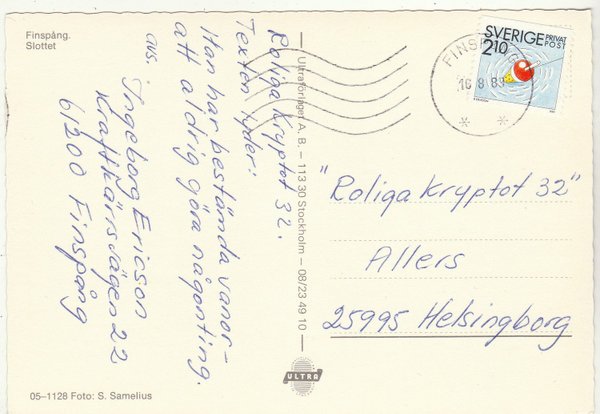 Finspång.
Slottet
Roliga Kryptot 32.
Texten lyder:
Han har bestämda vanor-
att aldrig göra någonting.
avs. Ingeborg Ericson
Kraftkärrsvägen 22
61200 Finspång
Ultraförlaget A. B. – 113 30 Stockholm – 08/23 49 10
ULTRA
05–1128 Foto: S. Samelius
SVERIGE PRIVAT
POST
210
FINSPÅNG
16 8 89
"Roliga Kryptot 32"
Allers
25995 Helsingborg